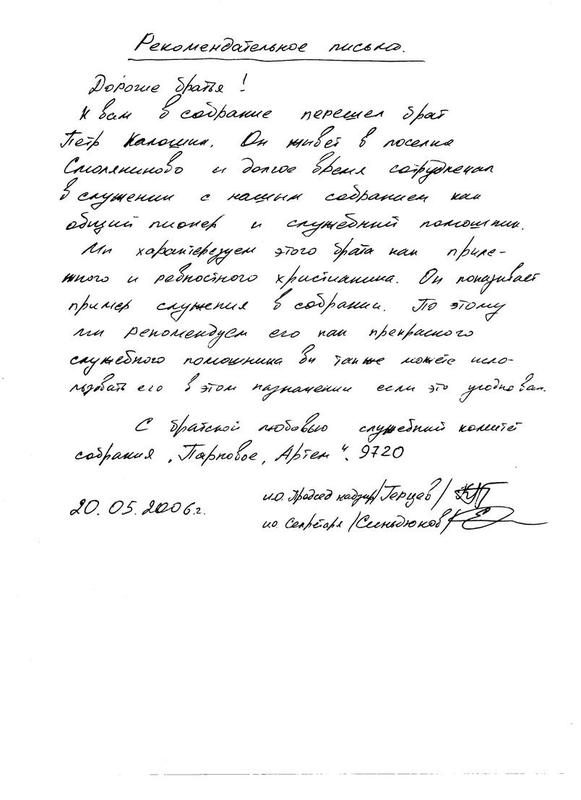 Рекомендательное письмо.
Дорогие братья!
К вам в собрание перешел брат
Петр Калошин. Он живет в поселке
Смоляниново и долгое время сотрудничал
в служении с нашим собранием как
общий пионер и служебный помошник.
Мы характерезуем этого брата как приле-
жного и ревностного христианина. Он показывает
пример служения в собрании. По этому
мы рекомендуем его как прекрасного
служебного помошника вы также можете испо-
льзовать его в этом назначении если это угодно вам.
С братской любовью служебный комитет
собрания „Парковое, Артем“. 9720
20.05.2006г.
ио Председ надзир/Герцев/
ио Секретаря /